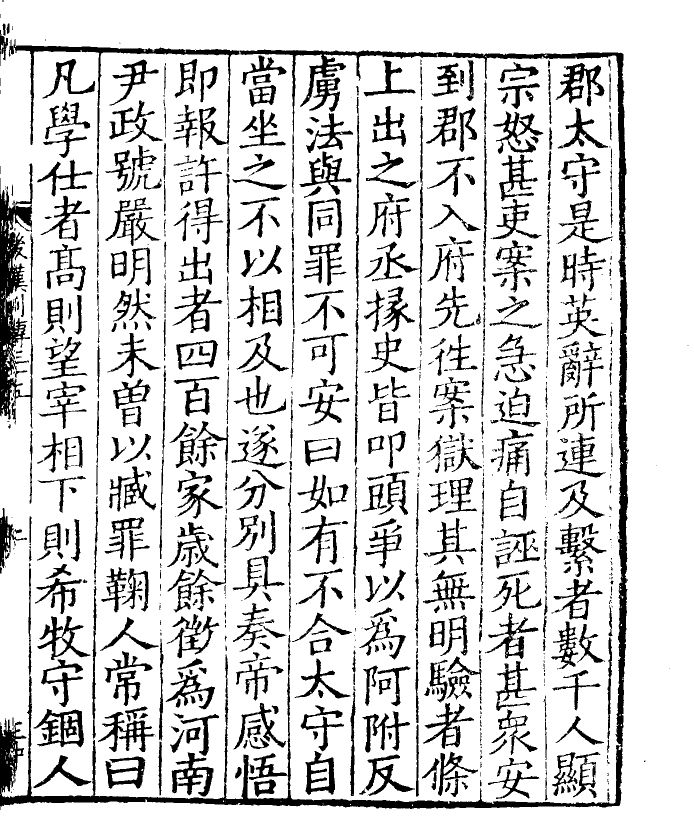 郡太守是時英辭所連及繫者數千人顯
宗怒甚吏案之急迫痛自誣死者甚衆安
到郡不入府先徃案獄理其無明驗者條
上出之府丞掾史皆叩頭爭以爲阿附反
虜法與同罪不可安曰如有不合太守自
當坐之不以相及也遂分別具奏帝感悟
即報許得出者四百餘家歲餘徵爲河南
尹政號嚴明然未曽以臧罪鞠人常稱曰
凡學仕者髙則望宰相下則希牧守錮人
後漢列傳三十五